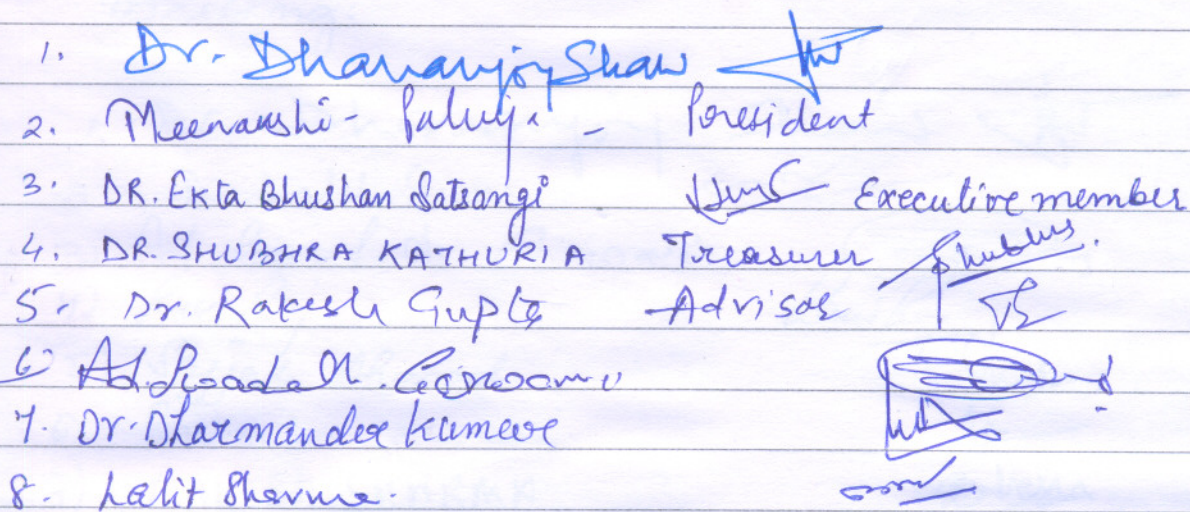 1. Dr. Dhananjoy Shaw
2. Meenakshi - Pahuja - President
3. DR. Ekta Bhushan Satsangi Executive member
4. DR. SHUBHRA KATHURIA Treasurer Shubhra
5. Dr. Rakesh Gupta Advisor
6. Goswami
7. Dr. Dharmander Kumar
8. Lalit Sharma.